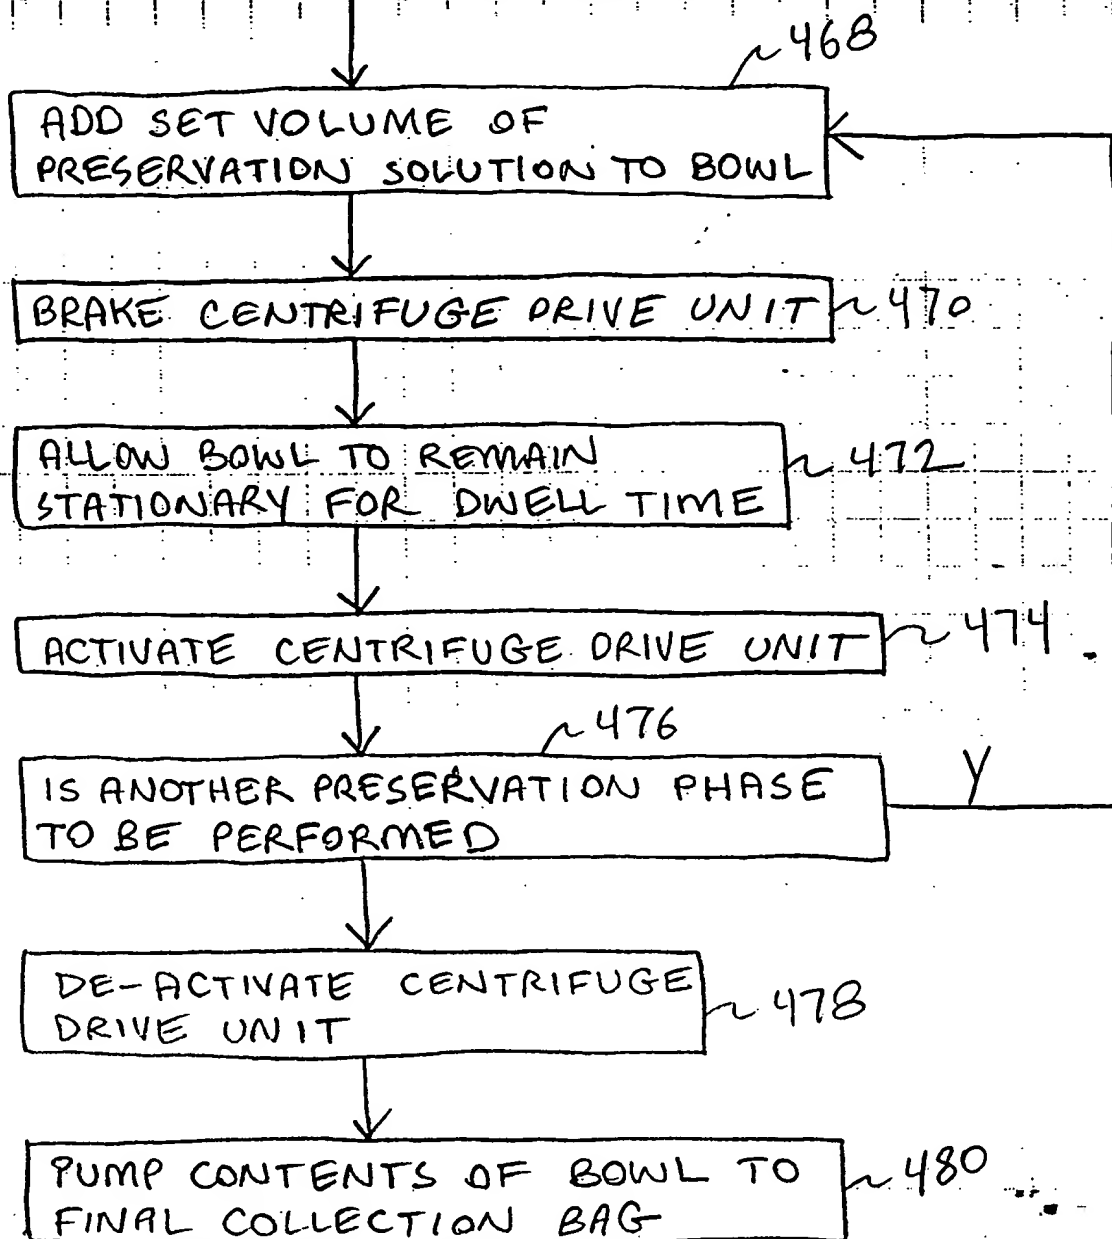 468
ADD SET VOLUME OF
PRESERVATION SOLUTION TO BOWL
BRAKE CENTRIFUGE DRIVE UNIT
470
ALLOW BOWL TO REMAIN
STATIONARY FOR DWELL TIME
472
ACTIVATE CENTRIFUGE DRIVE UNIT
474
476
IS ANOTHER PRESERVATION PHASE
TO BE PERFORMED
Y
DE-ACTIVATE CENTRIFUGE
DRIVE UNIT
478
PUMP CONTENTS OF BOWL TO
FINAL COLLECTION BAG
480